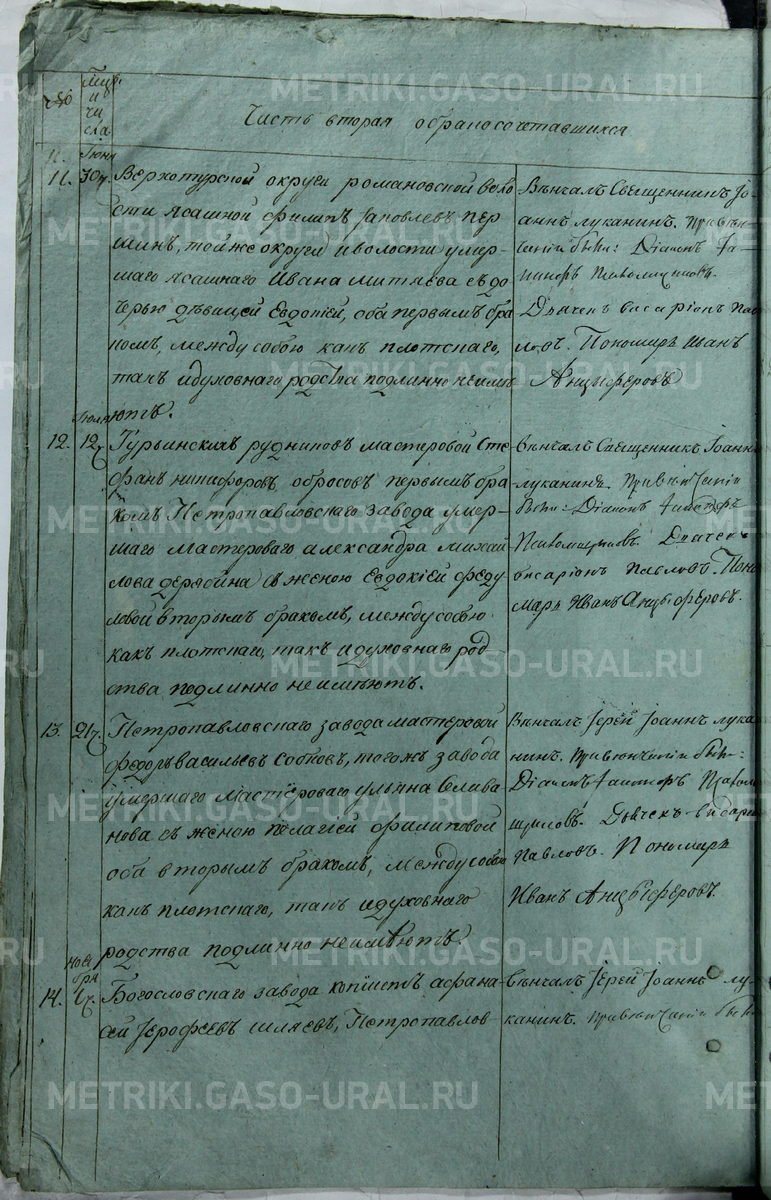 METRIKI.GASO-URAL.RU
№ Мцы и числа
Часть вторая о бракосочетавшихся
11. Июня 30ч. Верхотурской округи романовской воло-
сти ясашной филипъ яковлевъ пер-
шинъ, тойже округи и волости умер-
шаго ясашнаго Ивана митяева съ до-
черью дѣвицей Евдокіей, оба первымъ бра-
комъ, между собою какъ плотскаго,
такъ идуховнаго родства подлинно неимѣ-
ютъ.
Вѣнчалъ Священникъ Іо-
аннъ луканинъ. При вѣн-
чаніи были: Діаконъ
Псаломщиковъ.
Дьячекъ висаріонъ Пав-
ловъ. Пономарь Иванъ
Анцыферовъ
12. Июля 12ч. Турьинскихъ рудниковъ мастеровой Сте-
фанъ никифоровъ обросовъ первымъ бра-
комъ Петропавловскаго завода умер-
шаго мастероваго александра михай-
лова съ женою Евдокіей феду-
ловой вторымъ бракомъ, между собою
какъ плотскаго, такъ идуховнаго род-
ства подлинно неимѣютъ.
вѣнчалъ Священникъ Іоаннъ
луканинъ. Привѣнчаніи
были: Діаконъ
Псаломщиковъ. Дьячекъ
висаріонъ Павловъ. Поно-
марь Иванъ Анцыферовъ.
13. 21ч. Петропавловскаго завода мастеровой
федоръ васильевъ Собковъ, тогожъ завода
умершаго мастероваго ульяна Селива-
нова съ женою пелагіей филиповой
оба вторымъ бракомъ, между собою
какъ плотскаго, такъ идуховнаго
родства подлинно неимѣютъ.
Вѣнчалъ Іерей Іоаннъ лука-
нинъ. Привѣнчаніи были:
Діаконъ Псаломщиковъ.
Дьячекъ висаріонъ
Павловъ. Пономарь
Иванъ Анцыферовъ.
14. Ноября Богословскаго завода копіистъ афана-
сей Іерофеевъ шляевъ, Петропавлов-
вѣнчалъ Іерей Іоаннъ лу-
канинъ. Привѣнчаніи были